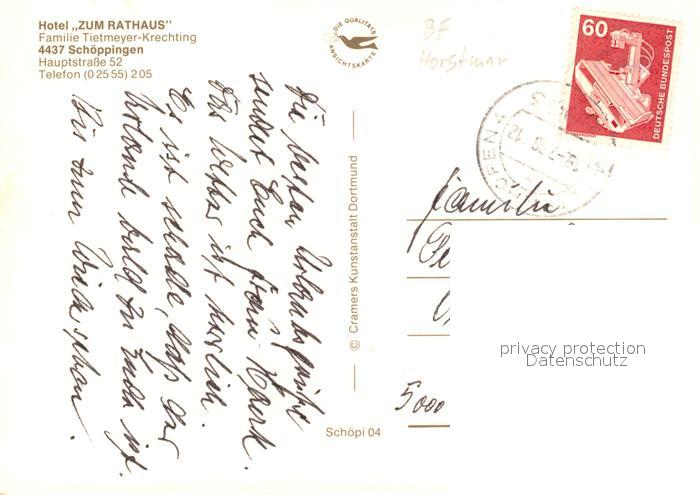 Hotel „ZUM RATHAUS"
Familie Tietmeyer-Krechting
4437 Schöppingen
Hauptstraße 52
Telefon (0 25 55) 2 05
DIE QUALITÄTS
ANSICHTSKARTE
BF
Horstmar
60
DEUTSCHE BUNDESPOST
Die besten Urlaubsgrüße
sendet Euch
Das Wetter ist herrlich.
Es ist schade, daß der
Urlaub bald zu Ende ist.
Bis zum Wiedersehen.
© Cramers Kunstanstalt Dortmund
Schöpi 04
Familie
5000
privacy protection
Datenschutz